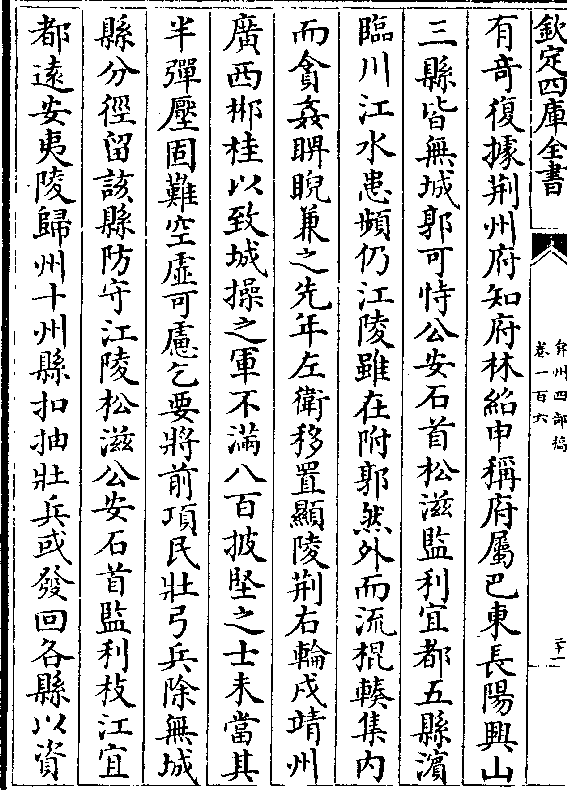 欽定四庫全書
弇州四部稿
卷一百六
二十一
有奇復據荆州府知府林紹申稱府屬巴東長陽興山
三縣皆無城郭可恃公安石首松滋監利宜都五縣濵
臨川江水患頻仍江陵雖在附郭然外而流棍輳集内
而貪姦睥睨兼之先年左衛移置顯陵荆右輪戍靖州
廣西郴桂以致城操之軍不滿八百披堅之士未當其
半彈壓固難空虚可慮乞要將前項民壯弓兵除無城
縣分徑留該縣防守江陵松滋公安石首監利枝江宜
都逺安夷陵歸州十州縣扣抽壯兵或發回各縣以資